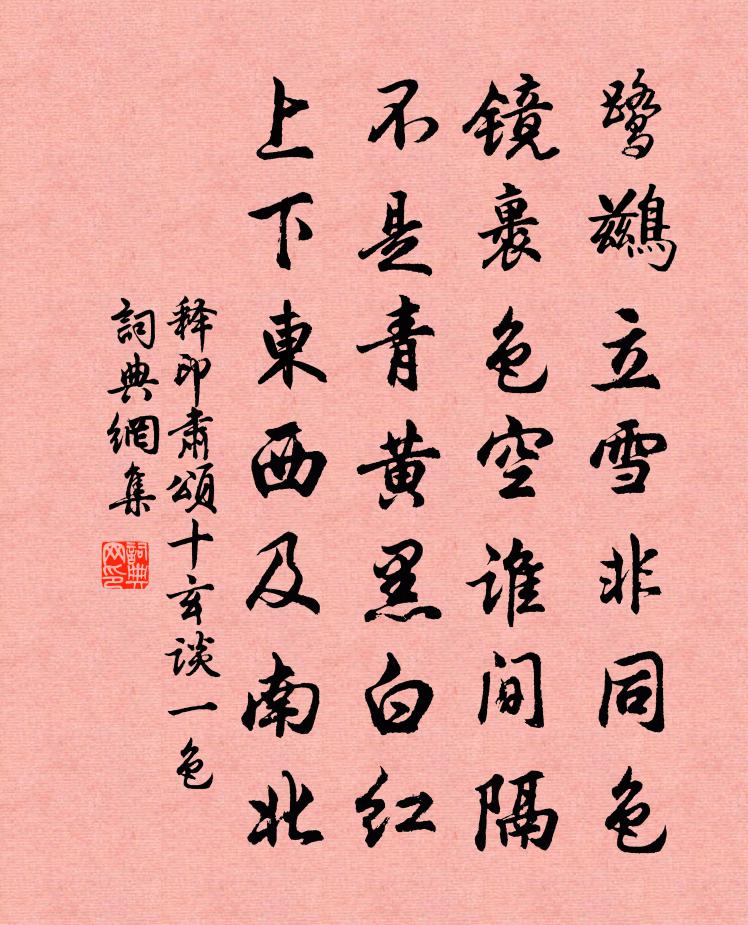 鹭鷀立雪非同色
镜裏色空谁间隔
不是青黄黑白红
上下東西及南北
释印肃頌十玄谈一色
詞典網集
詞典網印